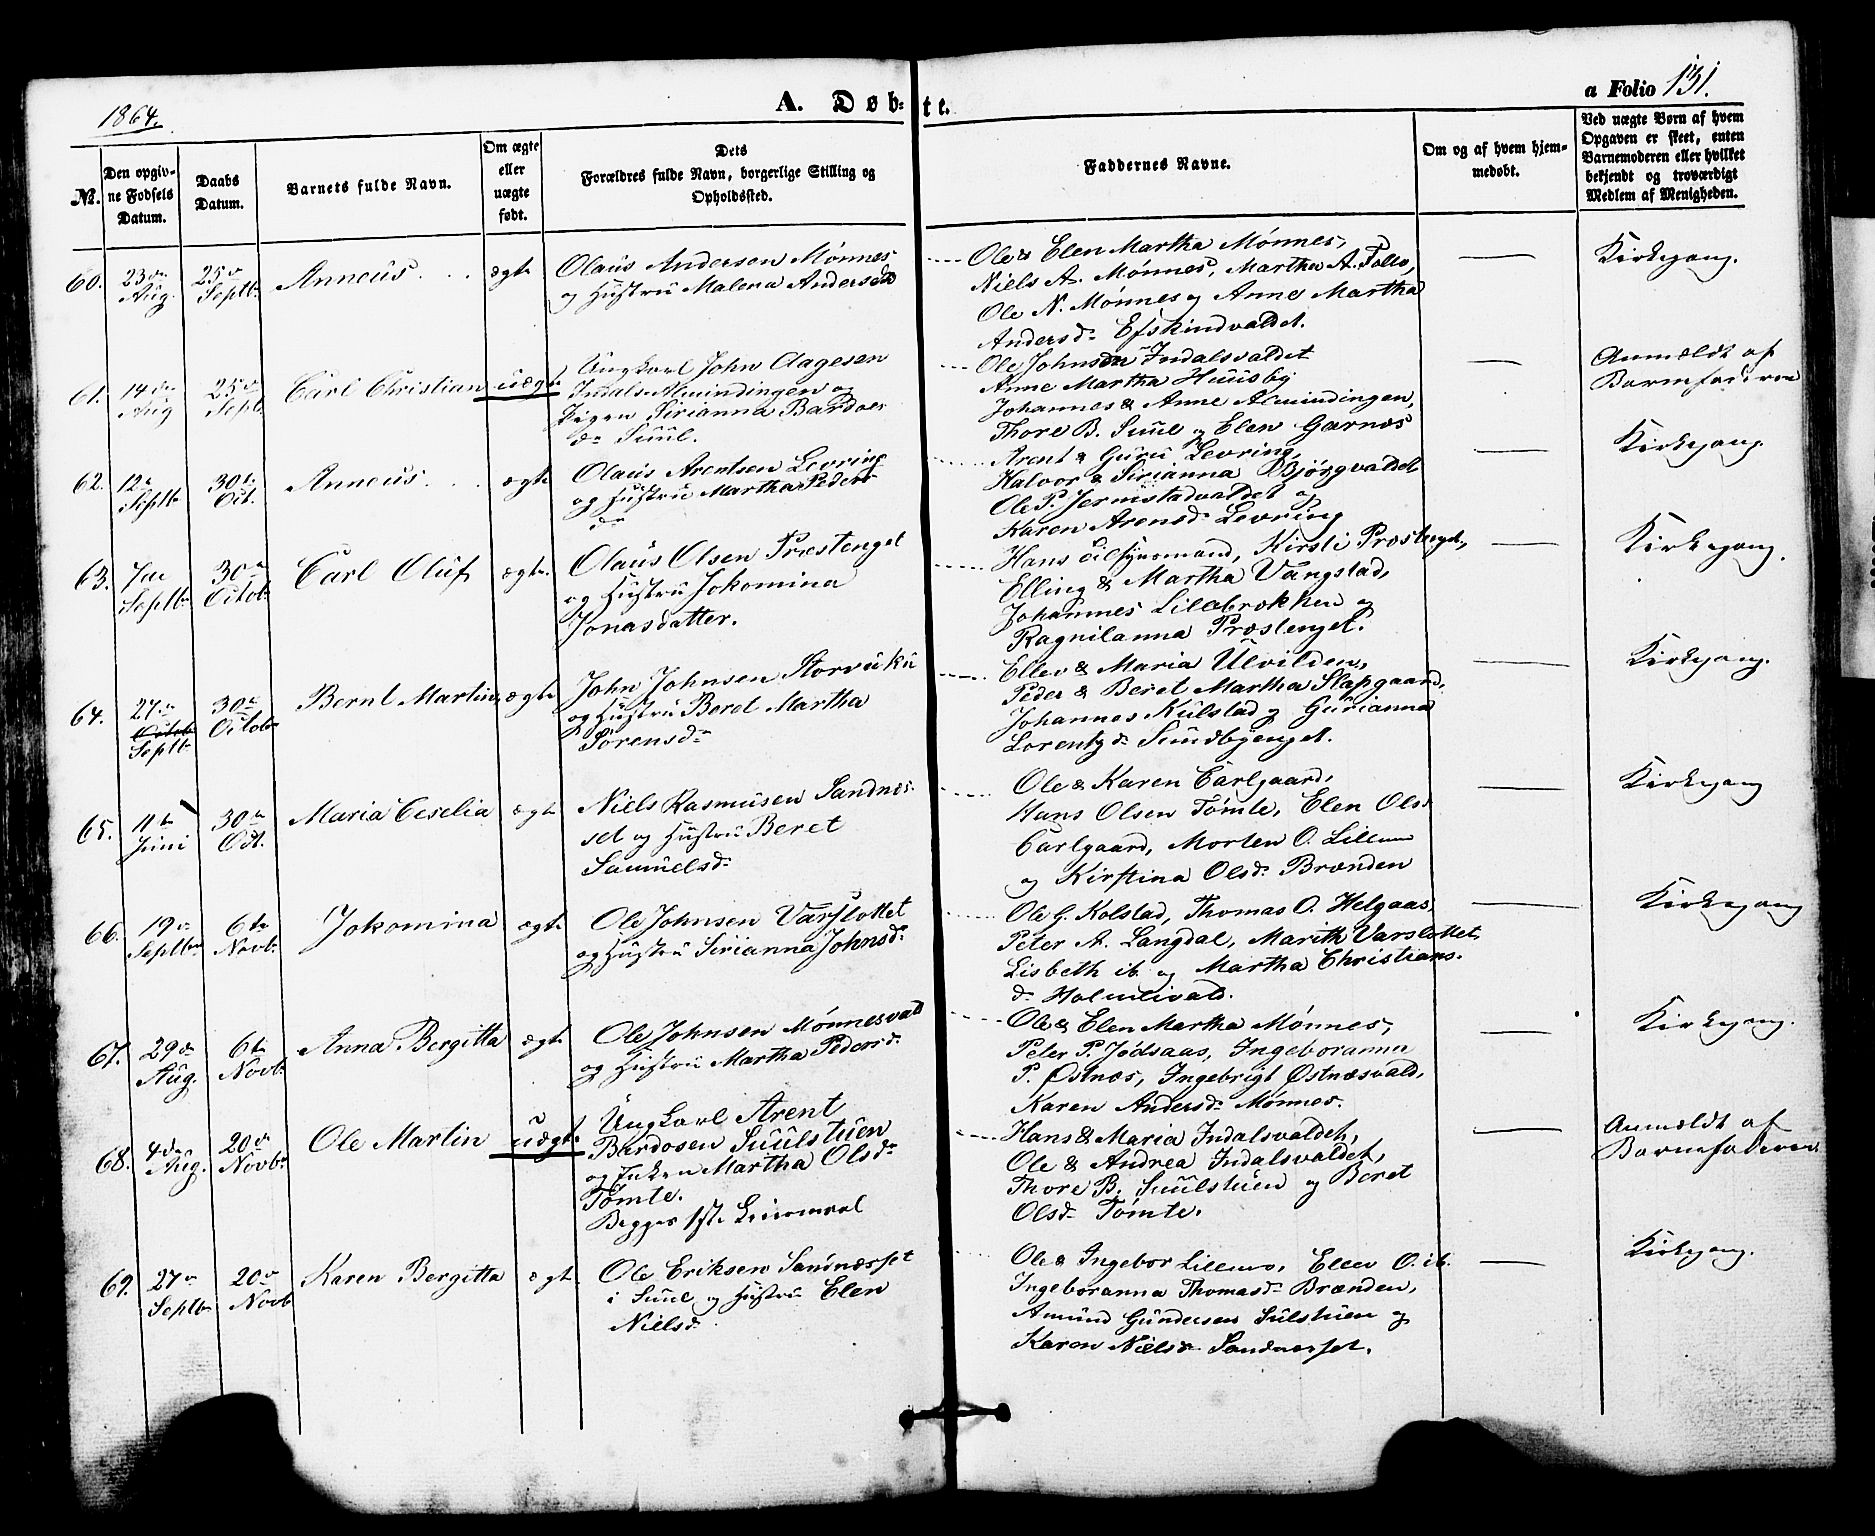 1864.
A. Døbte.
a Folio 131.
№.
Den opgivne Fødsels Datum.
Daabs Datum.
Barnets fulde Navn.
Om ægte eller uægte født.
Dets Forældres fulde Navn, borgerlige Stilling og Opholdssted.
Faddernes Navne.
Om og af hvem hjemmedøbt.
Ved uægte Børn af hvem Opgaven er skeet, enten Barnemoderen eller hvilket bekjendt og troværdigt Medlem af Menigheden.
60. 23de Aug. 25de Septbr. Anneus. ægte
Olaus Andersen Mønnes
og Hustru Malena Andersda
Ole & Elen Martha Mønnes,
Niels A. Mønnes, Martha A. Follo,
Ole N. Mønnes og Anne Martha
Andersdr Efskindvaldet.
Kirkegang.
61. 14de Aug 25de Sept. Carl Christian uægte
Ungkarl John Aagesen
Indals Almindingen og
Pigen Sirianna Bardoes
dr Suul.
Ole Johnsen Indalsvaldet
Anne Martha Huusby
Johannes & Anne Almindingen,
Thore B. Suul og Elen Garnæs
Anmeldt af
Barnefaderen
62. 12te Septbr 30te Oct. Anneus. ægte
Olaus Arentsen Levring
og Hustru Martha Peders
dr
Arent & Guru Levring,
Halvor & Sirianna Bjørgvaldet
Ole P. Jermstadvaldet og
Karen Arensdr Levring
Kirkegang.
63. 7de Septbr 30te Octobr Carl Oluf ægte.
Olaus Olsen Præstenget
og Hustru Jokomina
Jonasdatter.
Hans Tilsynsmand, Kirsti Præstenget,
Elling & Martha Vangstad,
Johannes Lillebrokken og
Ragnilanna Præstenget.
Kirkegang.
64. 27de Octob Septbr 30te Octobr Bernt Martin, ægte
John Johnsen Storvuku
og Hustru Beret Martha
Sørensdr
Ellev & Maria Ulvilden,
Peder & Beret Martha Slapgaard,
Johannes Kulstad og Gurianna
Lorentzdr Sundbyenget.
Kirkegang.
65. 11te Juni 30te Oct. Maria Ceselia ægte
Niels Rasmusen Sandnes-
set og Hustru Beret
Samuelsdr
Ole & Karen Carlgaard,
Hans Olsen Tømte, Elen Olsdr
Carlgaard, Morten O. Lillemo
og Kirstina Olsdr Brænden
Kirkegang
66. 19de Septbr 6te Novbr. Jokomina ægte.
Ole Johnsen Varslottet
og Hustru Sirianna Johnsdr
Ole G. Kolstad, Thomas O. Helgaas,
Peter A. Langdal, Marith Varslottet,
Lisbeth ib. og Martha Christians.
dr Holmlivald.
Kirkegang
67. 29de Aug. 6te Novbr. Anna Bergitta ægte
Ole Johnsen Mønnesvad
og Hustru Martha Pedersdr
Ole & Elen Martha Mønnes,
Peter P. Jødsaas, Ingeboranna
P. Østnæs, Ingebrigt Østnæsvald,
Karen Andersdr Mønnes.
Kirkegang.
68. 4de Aug. 20de Novbr Ole Martin uægte
Ungkarl Arent
Bardosen Suulstuen
og Enken Martha Olsdr
Tømte.
Begges 1ste Leiermaal
Hans & Maria Indalsvaldet,
Ole & Andrea Indalsvaldet,
Thore B. Suulstuen og Beret
Olsdr Tømte.
Anmeldt af
Barnefaderen
69. 27de Septbr 20de Novb Karen Bergitta ægte
Ole Eriksen Sandnæsset
i Suul og Hustru Elen
Nielsdr
Ole & Ingebor Lillemo, Ellev O. ib.
Ingeboranna Thomasdr Brænden,
Amund Gundersen Sulstuen og
Karen Nielsdr Sandnæsset.
Kirkegang.